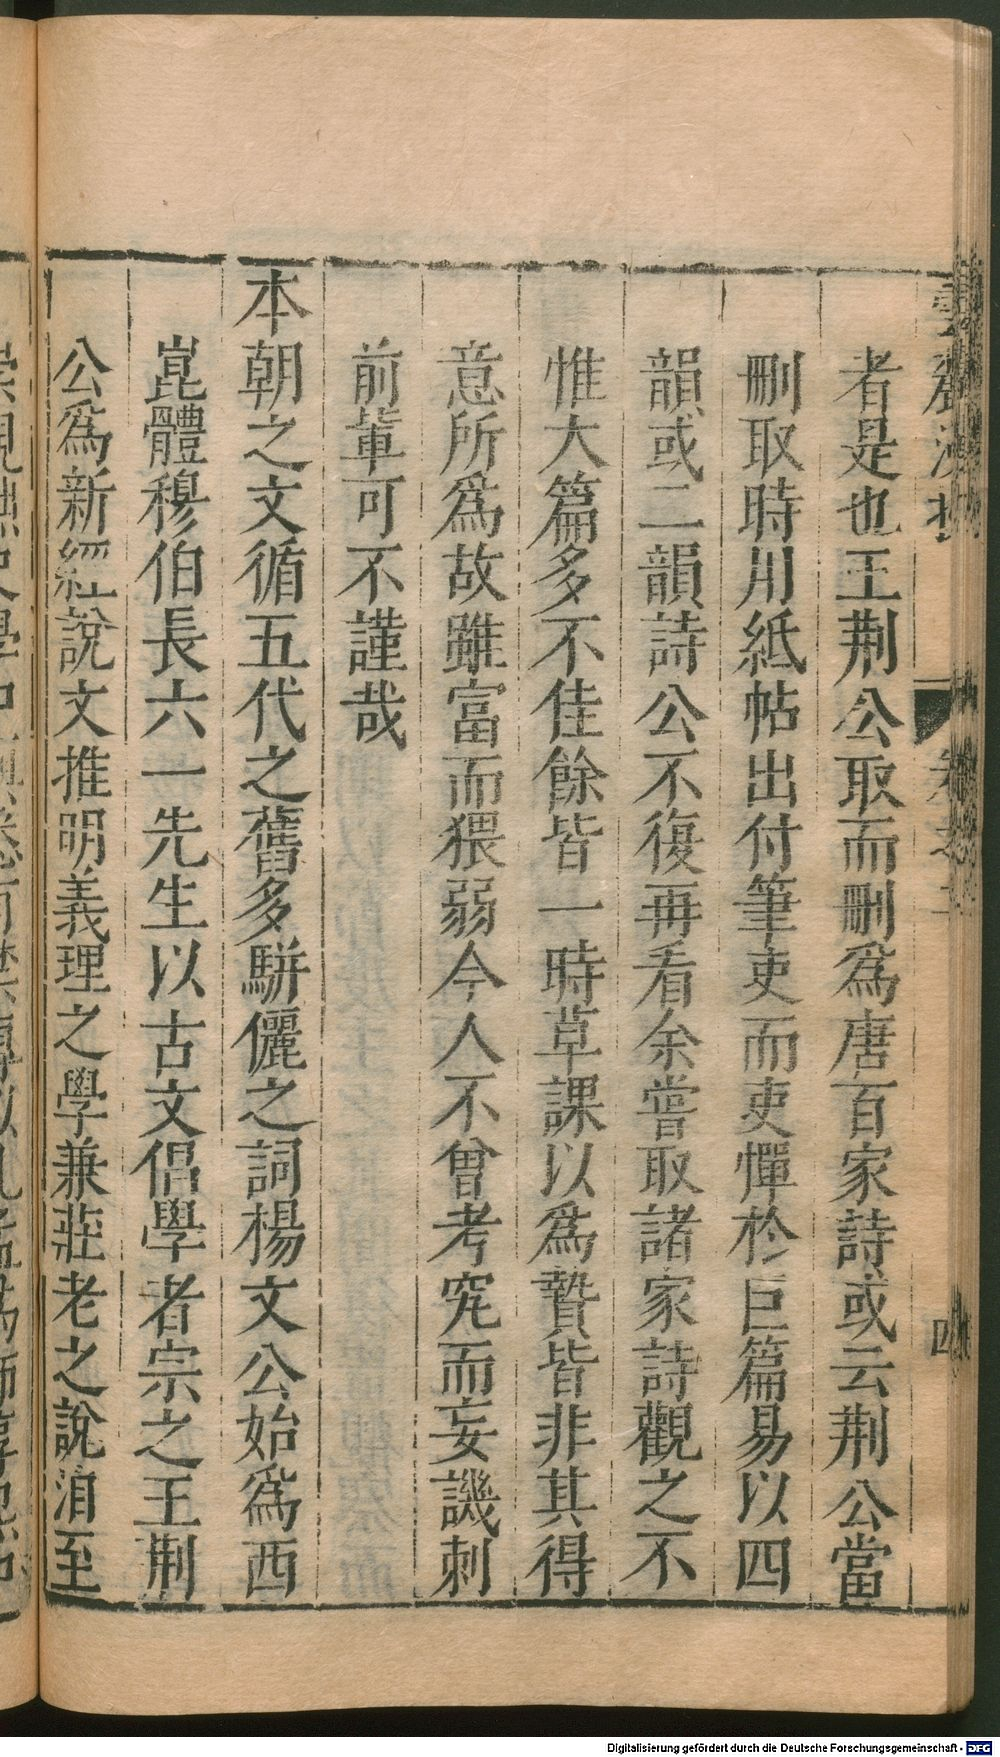 者是也王荆公取而刪爲唐百家詩或云荆公當
刪取時用紙帖出付筆吏而吏憚於巨篇易以四
韻或二韻詩公不復再看余嘗取諸家詩觀之不
惟大篇多不佳餘皆一時草課以爲贄皆非其得
意所爲故雖富而猥弱今人不曾考究而妄譏刺
前輩可不謹哉
本朝之文循五代之舊多駢儷之詞楊文公始爲西
崑體穆伯長六一先生以古文倡學者宗之王荆
公爲新經說文推明義理之學兼莊老之說洎至
Digitalisierung gefördert durch die Deutsche Forschungsgemeinschaft - DFG